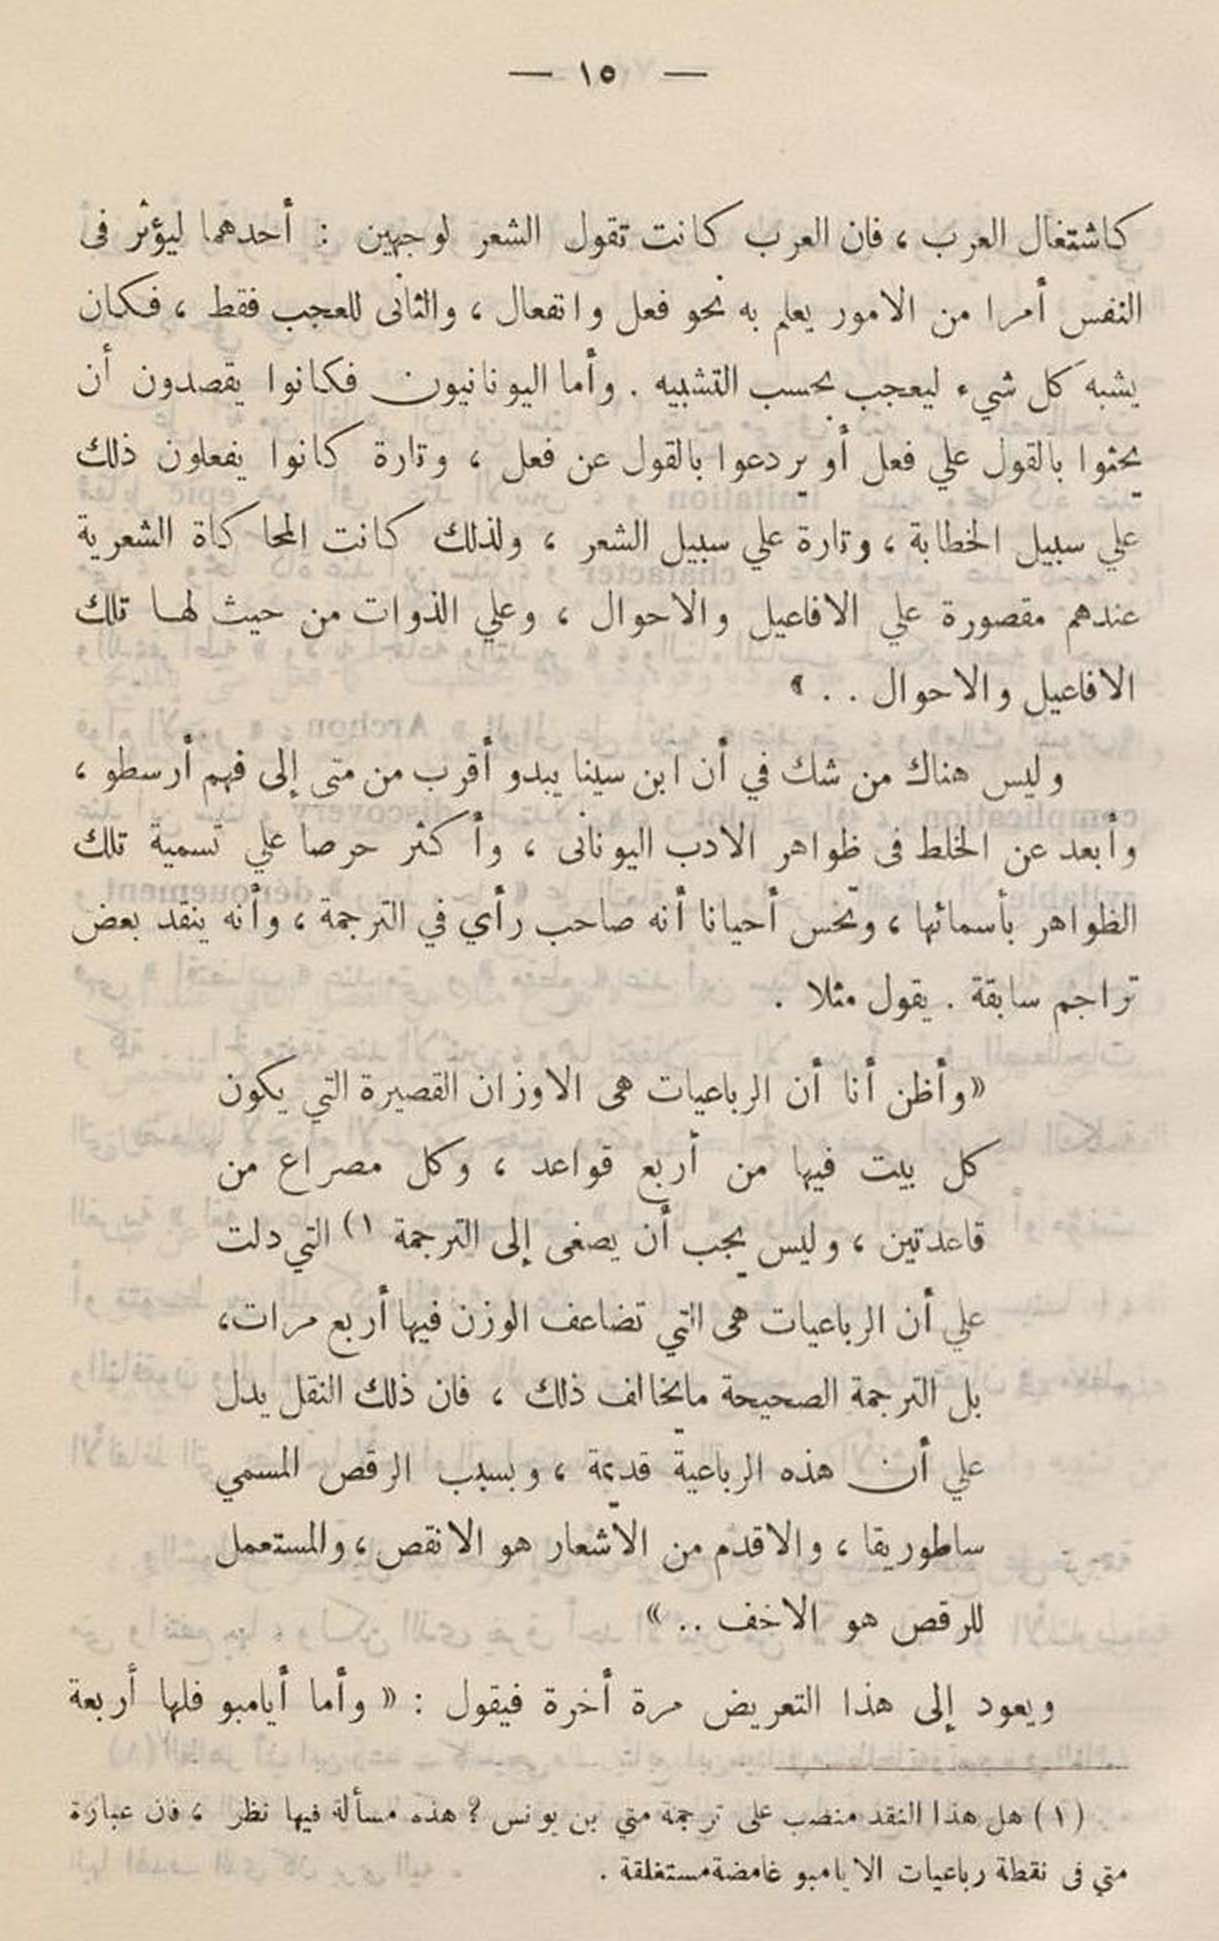 — ١٥ —
كاشتغال العرب ، فان العرب كانت تقول الشعر لوجهين : أحدهما ليؤثر فى
النفس أمرا من الامور يعلم به نحو فعل وانفعال ، والثانى للعجب فقط ، فكان
يشبه كل شيء ليعجب بحسب التشبيه . وأما اليونانيون فكانوا يقصدون أن
يحثوا بالقول علي فعل أو يردعوا بالقول عن فعل ، وتارة كانوا يفعلون ذلك
علي سبيل الخطابة ، وتارة علي سبيل الشعر ، ولذلك كانت المحاكاة الشعرية
عندهم مقصورة علي الافاعيل والاحوال ، وعلي الذوات من حيث لها تلك
الافاعيل والاحوال . . »
وليس هناك من شك في أن ابن سينا يبدو أقرب من متى إلى فهم أرسطو ،
وأبعد عن الخلط فى ظواهر الادب اليونانى ، وأكثر حرصا علي تسمية تلك
الظواهر بأسمائها ، وتحس أحيانا أنه صاحب رأي في الترجمة ، وأنه ينقد بعض
تراجم سابقة . يقول مثلا .
«وأظن أنا أن الرباعيات هى الاوزان القصيرة التي يكون
كل بيت فيها من أربع قواعد ، وكل مصراع من
قاعدتين ، وليس يجب أن يصغى إلى الترجمة ١) التي دلت
علي أن الرباعيات هى التي تضاعف الوزن فيها أربع مرات،
بل الترجمة الصحيحة مايخالف ذلك ، فان ذلك النقل يدل
علي أن هذه الرباعية قديمة ، وبسبب الرقص المسمي
ساطوريقا ، والاقدم من الأشعار هو الانقص ، والمستعمل
للرقص هو الاخف .. »
ويعود إلى هذا التعريض مرة أخرة فيقول : « وأما أيامبو فلها أربعة
(١) هل هذا النقد منصب على ترجمة متي بن يونس ؟ هذه مسألة فيها نظر ، فان عبارة
متي فى نقطة رباعيات الايامبو غامضة مستغلقة .